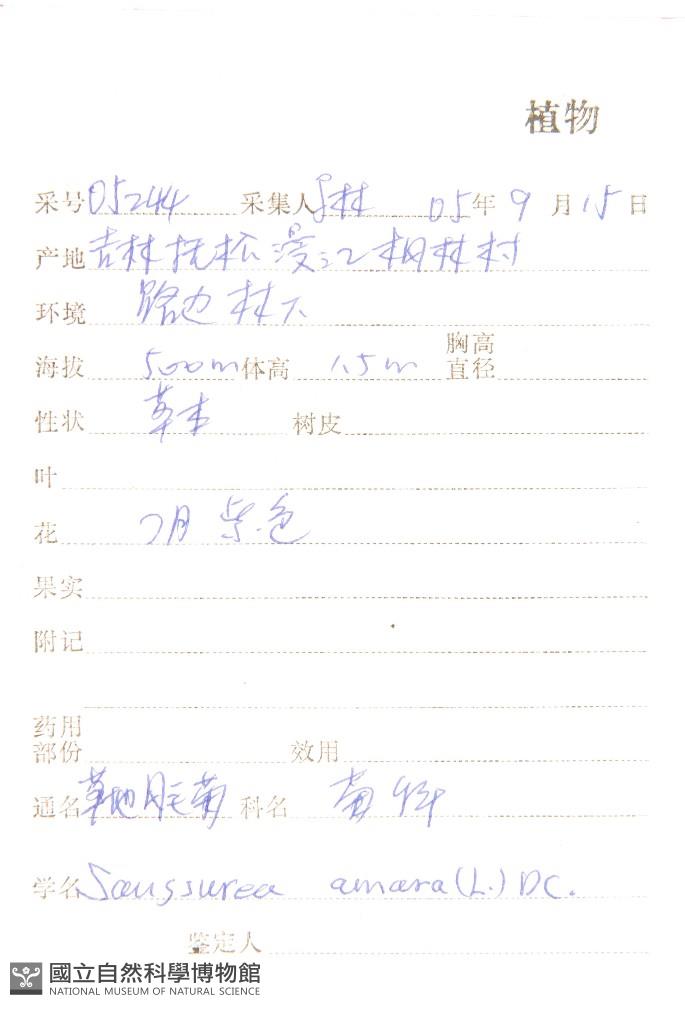 植物
采号 05244 采集人 林 05年9月15日
产地 吉林抚松漫江枫林村
环境 路边林下
海拔 500m 体高 1.5m 胸高直径
性状 草本 树皮
叶
花 7月 紫色
果实
附记
药用部份 效用
通名 草地风毛菊 科名 菊科
学名 Saussurea amara (L.) DC.
鉴定人
國立自然科學博物館
NATIONAL MUSEUM OF NATURAL SCIENCE